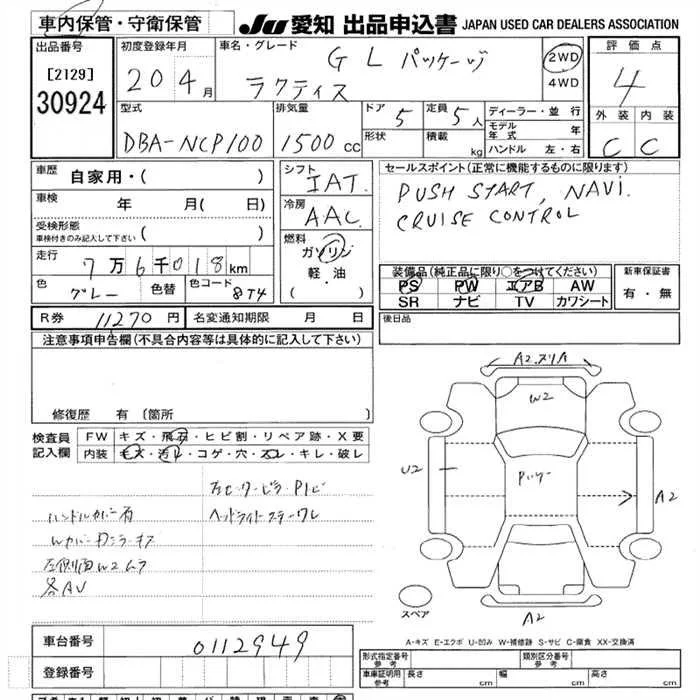 車内保管・守衛保管
JU 愛知 出品申込書 JAPAN USED CAR DEALERS ASSOCIATION
出品番号
[2129]
30924
初度登録年月
20 4月
車名・グレード
GL パッケージ
ラクティス
2WD
4WD
評価点
4
外装 内装
C C
型式
DBA-NCP100
排気量
1500 cc
ドア 5
形状
定員 5人
積載 kg
ディーラー・並行
モデル年式 年
ハンドル 左・右
車歴 自家用・( )
車検 年 月( 日)
受検形態
車検付きのみ記入して下さい ( )
走行 7万6千018km
色 グレー 色替 色コード 8T4
シフト
IAT.
冷房
AAC.
燃料
ガソリン
軽・油
(・ )
セールスポイント(正常に機能するものに限ります)
PUSH START, NAVi.
CRUISE CONTROL
装備品(純正品に限り○をつけてください)
PS PW エアB AW
SR ナビ TV カワシート
新車保証書
有・無
R券 11270 円 名変通知期限 月 日
後日品
注意事項申告欄(不具合内容等は具体的に記入して下さい)
修復歴 有 〔箇所
検査員記入欄
FW キズ・飛石・ヒビ割・リペア跡・X要
内装 キズ・汚レ・コゲ・穴・スレ・キレ・破レ
ハンドルカバー有
ヘッドライトスターワレ
左側面W2ムラ
各AV
A2.メリA
W2
U2
A2
A2
スペア
A-キズ E-エクボ U-凹み W-補修跡 S-サビ C-腐食 XX-交換済
車台番号
0112949
登録番号
形式指定番号
参考
類別区分番号
参考
車車証明用
参考
長さ cm 幅 cm 高さ cm